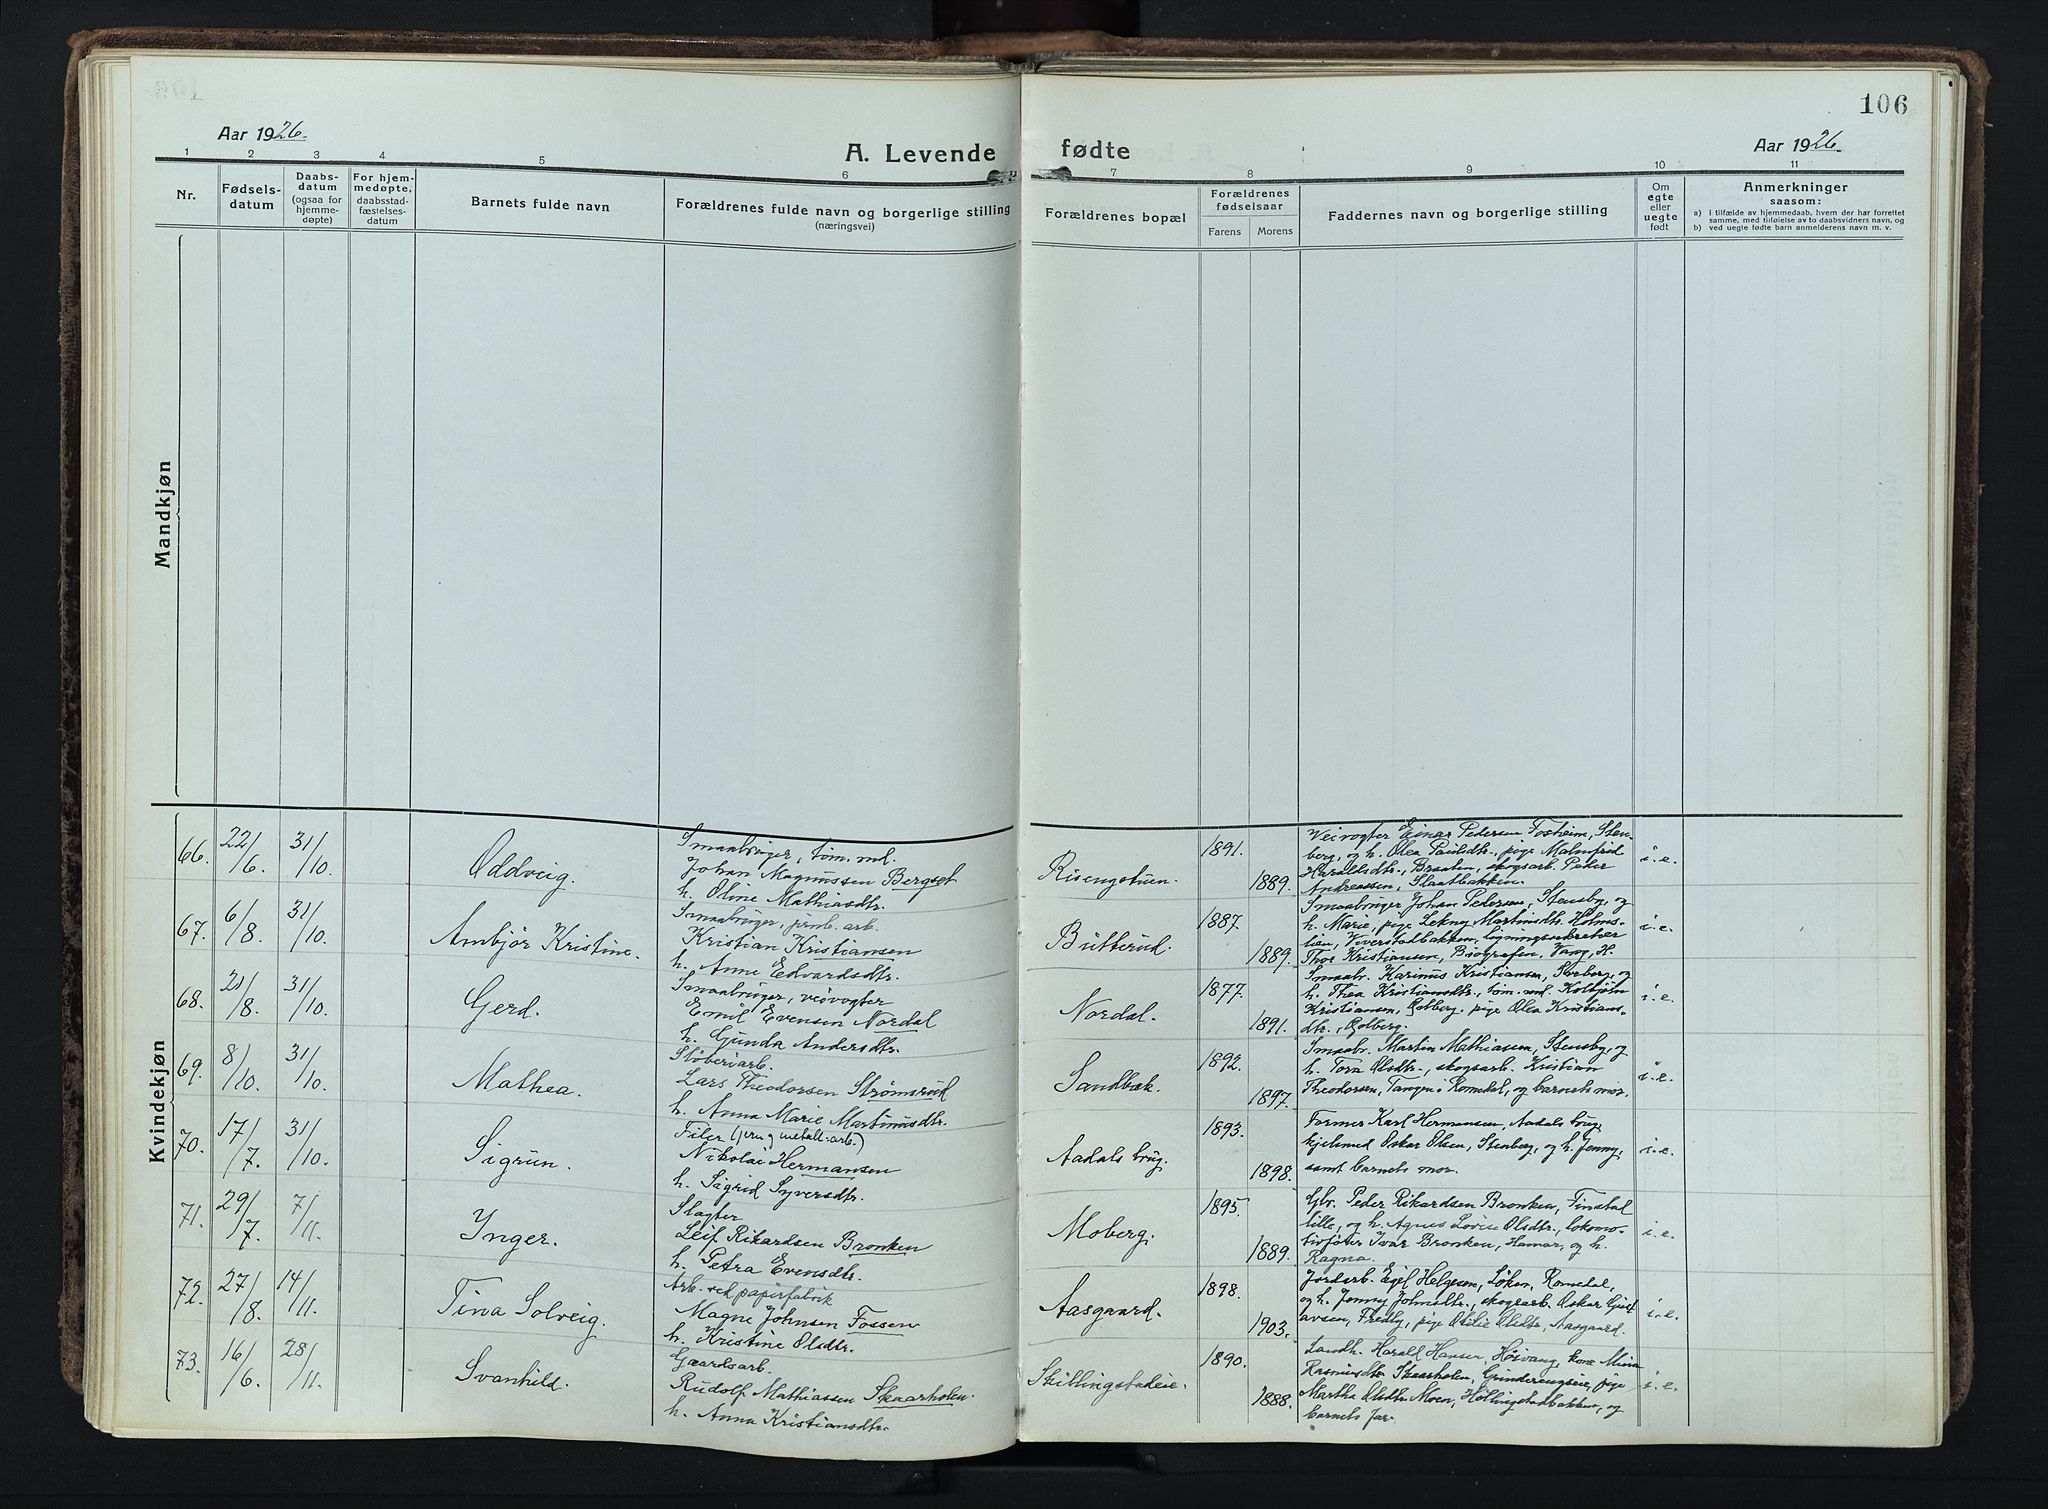 106
Aar 1926.
A. Levende fødte
Aar 1926.
1 2 3 4 5 6 7 8 9 10 11
Nr.
Fødsels-
datum
Daabs-
datum
(ogsaa for
hjemme-
døpte)
For hjem-
medøpte,
daabsstad-
fæstelses-
datum
Barnets fulde navn
Forældrenes fulde navn og borgerlige stilling
(næringsvei)
Forældrenes bopæl
Forældrenes
fødselsaar
Farens Morens
Faddernes navn og borgerlige stilling
Om
egte
eller
uegte
født
Anmerkninger
saasom:
a) i tilfælde av hjemmedaab, hvem der har forrettet
samme, med tilføielse av to daabsvidners navn, og
b) ved uegte fødte barn anmelderens navn m. v.
Mandkjøn
Kvindekjøn
66. 22/6. 31/10. Oddveig.
Smaabruger, tøm. md.
Johan Magnussen Bergset
h. Oline Mathiasdtr.
Risengstuen. 1891. 1889.
Veivogter Einar Pedersen Fosheim, Sten-
berg, og h. Olea Paulsdtr., pige Malmfrid
Haraldsdtr., Braaten, skogsarb. Peder
Andreassen, Slaatbakken.
i. e.
67. 6/8. 31/10. Ambjør Kristine.
Smaabruger, jernb. arb.
Kristian Kristiansen
h. Anne Edvardsdtr.
Butterud. 1887. 1889.
Smaabruger Johan Pedersen, Stensby, og
h. Marie, pige Lekny Martinsdtr. Holms-
lien, Viverstadbakken, ligningssekretær
Thor Kristiansen, Biografen, Vang, H.
i. e.
68. 21/8. 31/10. Gerd.
Smaabruger, veivogter
Emil Evensen Nordal
h. Gunda Andersdtr.
Nordal. 1877. 1891.
Smaabr. Karinus Kristiansen, Søberg, og
h. Thea Kristiansdtr., tøm. md. Kolbjørn
Kristiansen, Golberg, pige Olea Kristians-
dtr., Golberg.
i. e.
69. 8/10. 31/10. Mathea.
Støberiarb.
Lars Theodorsen Strømsrud
h. Anna Marie Martinusdtr.
Sandbæk. 1892. 1897.
Smaabr. Martin Mathiassen, Stensby, og
h. Tora Olsdtr., skogsarb. Kristian
Theodorsen, Tangen i Romedal, og barnets mor.
i. e.
70. 17/7. 31/10. Sigrun.
Filer (jern og metall-arb.)
Nikolai Hermansen
h. Sigrid Syversdtr.
Aadals brug. 1893. 1898.
Former Karl Hermansen, Aadals brug,
hjelsmed Oskar Olsen, Stenberg, og h. Jenny,
samt barnets mor.
i. e.
71. 29/7. 7/11. Inger.
Slagter
Leif Rikardsen Bronken
h. Petra Evensdtr.
Moberg. 1895. 1889.
Gbr. Peder Rikardsen Bronken, Finstad
lille, og h. Agnes Lovise Olsdtr., lokomo-
tivfører Ivar Bronken, Hamar, og h.
Ragna.
i. e.
72. 27/8. 14/11. Tina Solveig.
Arb. ved papirfabrik
Magne Johnsen Fossen
h. Kristine Olsdtr.
Aasgaard. 1898. 1903.
Jordarb. Egil Helgesen, Løken, Romedal,
og h. Jenny Johnsdtr., skogsarb. Oskar Gust-
avsen, Fredly, pige Otilie Olsdtr., Aasgaard.
i. e.
73. 16/6. 28/11. Svanhild.
Gaardsarb.
Rudolf Mathiassen Skaarholen
h. Anna Kristiansdtr.
Skillingstadeie. 1890. 1888.
Landh. Harald Hansen, Høivang, kone Mina
Rasmusdtr. Skaarholen, Grinderengseie, pige
Martha Olsdtr. Moen, Høllingstadbakken, og
barnets far.
i. e.